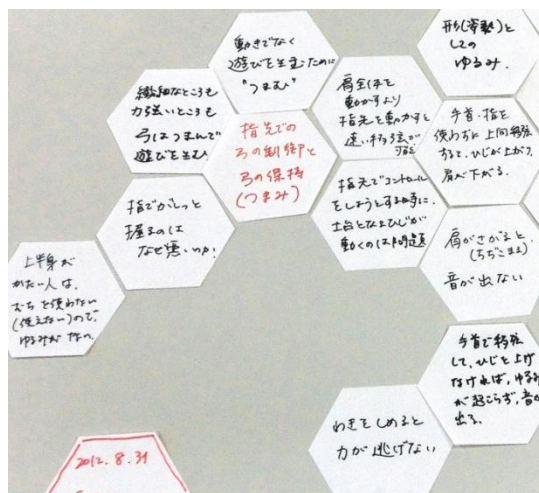 動きでなく
遊びを生むために
"つまむ"
形(姿勢)と
しての
ゆるみ.
繊細なところも
力強いところも
弓はつまんで
遊びを生む
肩全体を
動かすより
指先を動かすと
速い移弦が
可能
指先での
弓の制御と
弓の保持
(つまみ)
手首・指を
使わずに上向移弦
すると、ひじが上がり
肩が下がる.
指でがしっと
握るのは
なぜ悪いのか?
指先でコントロール
をしようとする時に、
土台となるひじが
動くのは問題
肩がさがると
(ちぢこまる)
音が出ない
上半身が
かたい人は、
を使わない
(使えない)ので、
ゆるみが
手首で移弦
して、ひじを上げ
なければ、ゆるみ
が起こらず、音が
出る.
わきをしめると
力が逃げない
2012.8.31